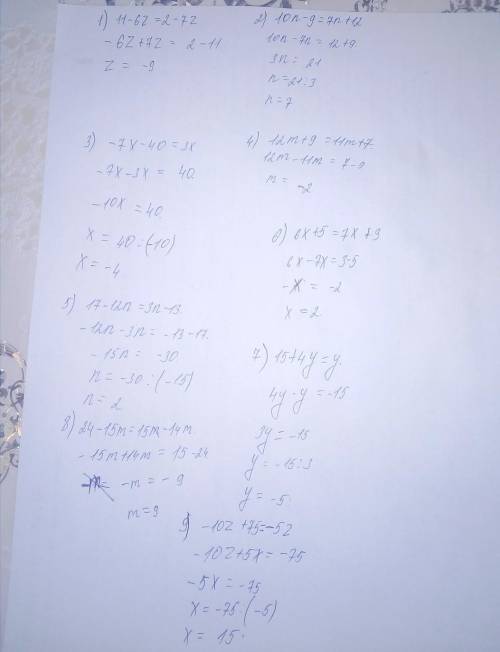 1) 11-6z=2-7z
-6z+7z= 2-11
z= -9
2) 10n-9=7n+12
10n-7n=12+9
3n= 21
n=21:3
n=7
3) -7x-40=3x
-7x-3x= 40
-10x=40
x=40:(-10)
x=-4
4) 12m+9=11m+7
12m-11m=7-9
m= -2
5) 17-12n=3n-13
-12n-3n=-13-17
-15n= -30
n=-30:(-15)
n=2
6) 6x+5=7x+3
6x-7x=3-5
-x= -2
x=2
7) 15+4y=y
4y-y=-15
3y=-15
y=-15:3
y=-5
8) 24-15m=15m-14m
-15m+14m=15-24
-m=-9
m=9
9) -10z+75=-5z
-10z+5x=-75
-5x=-75
x=-75:(-5)
x= 15